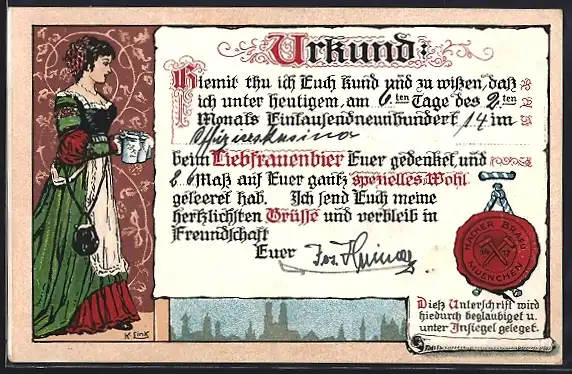 Urkund:
Hiemit thu ich Euch kund und zu wißen, daß
ich unter heutigem, am 6.ten Tage des 2.ten
Monats Eintausendneunhundert 14 im
Offizierskasino
beim Liebfrauenbier Euer gedenket, und
8 Maß auf Euer gantz spezielles Wohl
geleeret hab. Ich send Euch meine
hertzlichsten Grüße und verbleib in
Freundschaft
Euer Jos.
HACKER BRAEU
MUENCHEN
14 17
Dieß Unterschrift wird
hiedurch beglaubiget u.
unter Insiegel geleget.
K. Eink